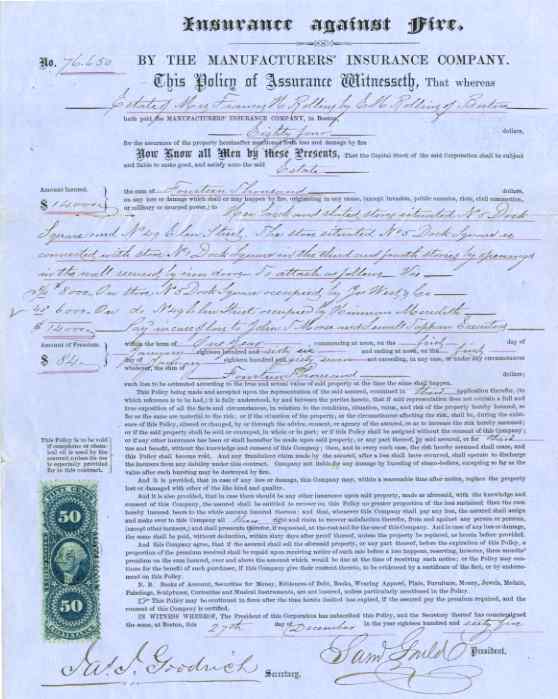 Insurance against Fire.
No. 76.650 BY THE MANUFACTURERS' INSURANCE COMPANY.
This Policy of Assurance Witnesseth, That whereas
Estate of Mrs Frances W Rollins by E. H. Rollins of Boston
hath paid the MANUFACTURERS' INSURANCE COMPANY, in Boston,
Eighty four dollars,
for the assurance of the property hereinafter mentioned from loss and damage by fire
Now Know all Men by these Presents, That the Capital Stock of the said Corporation shall be subject
and liable to make good, and satisfy unto the said Estate
Amount Insured. the sum of Fourteen Thousand dollars,
$ 14000 on any loss or damage which shall or may happen by fire, originating in any cause, (except invasion, public enemies, riots, civil commotion,
or military or usurped power,) to
and slated stores situated No 5 Dock
Square and No 49 Elm Street. The store situated No 5 Dock Square is
connected with store No Dock Square in the third and fourth stories by openings
in the wall secured by iron doors To attach as follows Viz
$ 8000 On store No 5 Dock Square occupied by West & Co
6000. On do No 49 Elm Street occupied by Meredith
$ 14000 Pay in case of loss to John J and Sewall Tappan Executors
Amount of Premium. within the term of One Year commencing at noon, on the first day of
$ 84. January eighteen hundred and sixty six and ending at noon, on the first
day of January eighteen hundred and sixty seven not exceeding, in any case, or under any circumstances
whatever, the sum of
Fourteen Thousand dollars;
such loss to be estimated according to the true and actual value of said property at the time the same shall happen.
This Policy being made and accepted upon the representation of the said assured, contained in application therefor, (to
which reference is to be had,) it is fully understood, by and between the parties hereto, that if said representation does not contain a full and
true exposition of all the facts and circumstances, in relation to the condition, situation, value, and risk of the property hereby insured, so
far as the same are material to the risk; or if the situation of the property, or the circumstances affecting the risk, shall be, during the continuance
of this Policy, altered or changed, by or through the advice, consent, or agency of the assured, so as to increase the risk hereby assured;
or if the said property shall be sold or conveyed, in whole or in part; or if this Policy shall be assigned without the consent of this Company;
or if any other insurance has been or shall hereafter be made upon said property, or any part thereof, by said assured, or for their
use and benefit, without the knowledge and consent of this Company; then, and in every such case, the risk hereby assured shall cease, and
this Policy shall become void. And any fraudulent claim made by the assured, after a loss shall have occurred, shall operate to discharge
the insurers from any liability under this contract. Company not liable for any damage by bursting of steam-boilers, excepting so far as the
value after such bursting may be destroyed by fire.
This Policy is to be void
if camphene or chemical
oil is used by the
assured unless the
is especially provided
for in this contract.
And it is provided, that in case of any loss or damage, this Company may, within a reasonable time after notice, replace the property
lost or damaged with other of the like kind and quality.
And it is also provided, that in case there should be any other insurance upon said property, made as aforesaid, with the knowledge and
consent of this Company, the assured shall be entitled to recover on this Policy no greater proportion of the loss sustained than the sum
hereby insured bears to the whole amount insured thereon; and that, whenever this Company shall pay any loss, the assured shall assign
and make over to this Company all their right and claim to recover satisfaction therefor, from and against any person or persons,
(except other insurers,) and shall prosecute therefor, if requested, at the cost and for the use of this Company. And in case of any loss or damage,
the same shall be paid, without deduction, within sixty days after proof thereof, unless the property be replaced, as herein before provided.
And this Company agree, that if the assured shall sell the aforesaid property, or any part thereof, before the expiration of this Policy, a
proportion of the premium received shall be repaid upon receiving notice of such sale before a loss happens, reserving, however, three months'
premium on the sum insured, over and above the amount which would be due at the time of receiving such notice; or the Policy may continue
for the benefit of such purchaser, if this Company give their consent thereto, to be evidenced by a certificate of the fact, or by endorsement
on this Policy.
N. B. Books of Account, Securities for Money, Evidences of Debt, Books, Wearing Apparel, Plate, Furniture, Money, Jewels, Medals,
Paintings, Sculptures, Curiosities and Musical Instruments, are not insured, unless particularly mentioned in the Policy.
This Policy may be continued in force after the time herein limited has expired, if the assured pay the premium required, and the
consent of this Company is certified.
IN WITNESS WHEREOF, The President of this Corporation has subscribed this Policy, and the Secretary thereof has countersigned
the same, at Boston, this 27th day of December in the year eighteen hundred and sixty five
Jas. J. Goodrich Secretary. Saml Gould President.
50
50